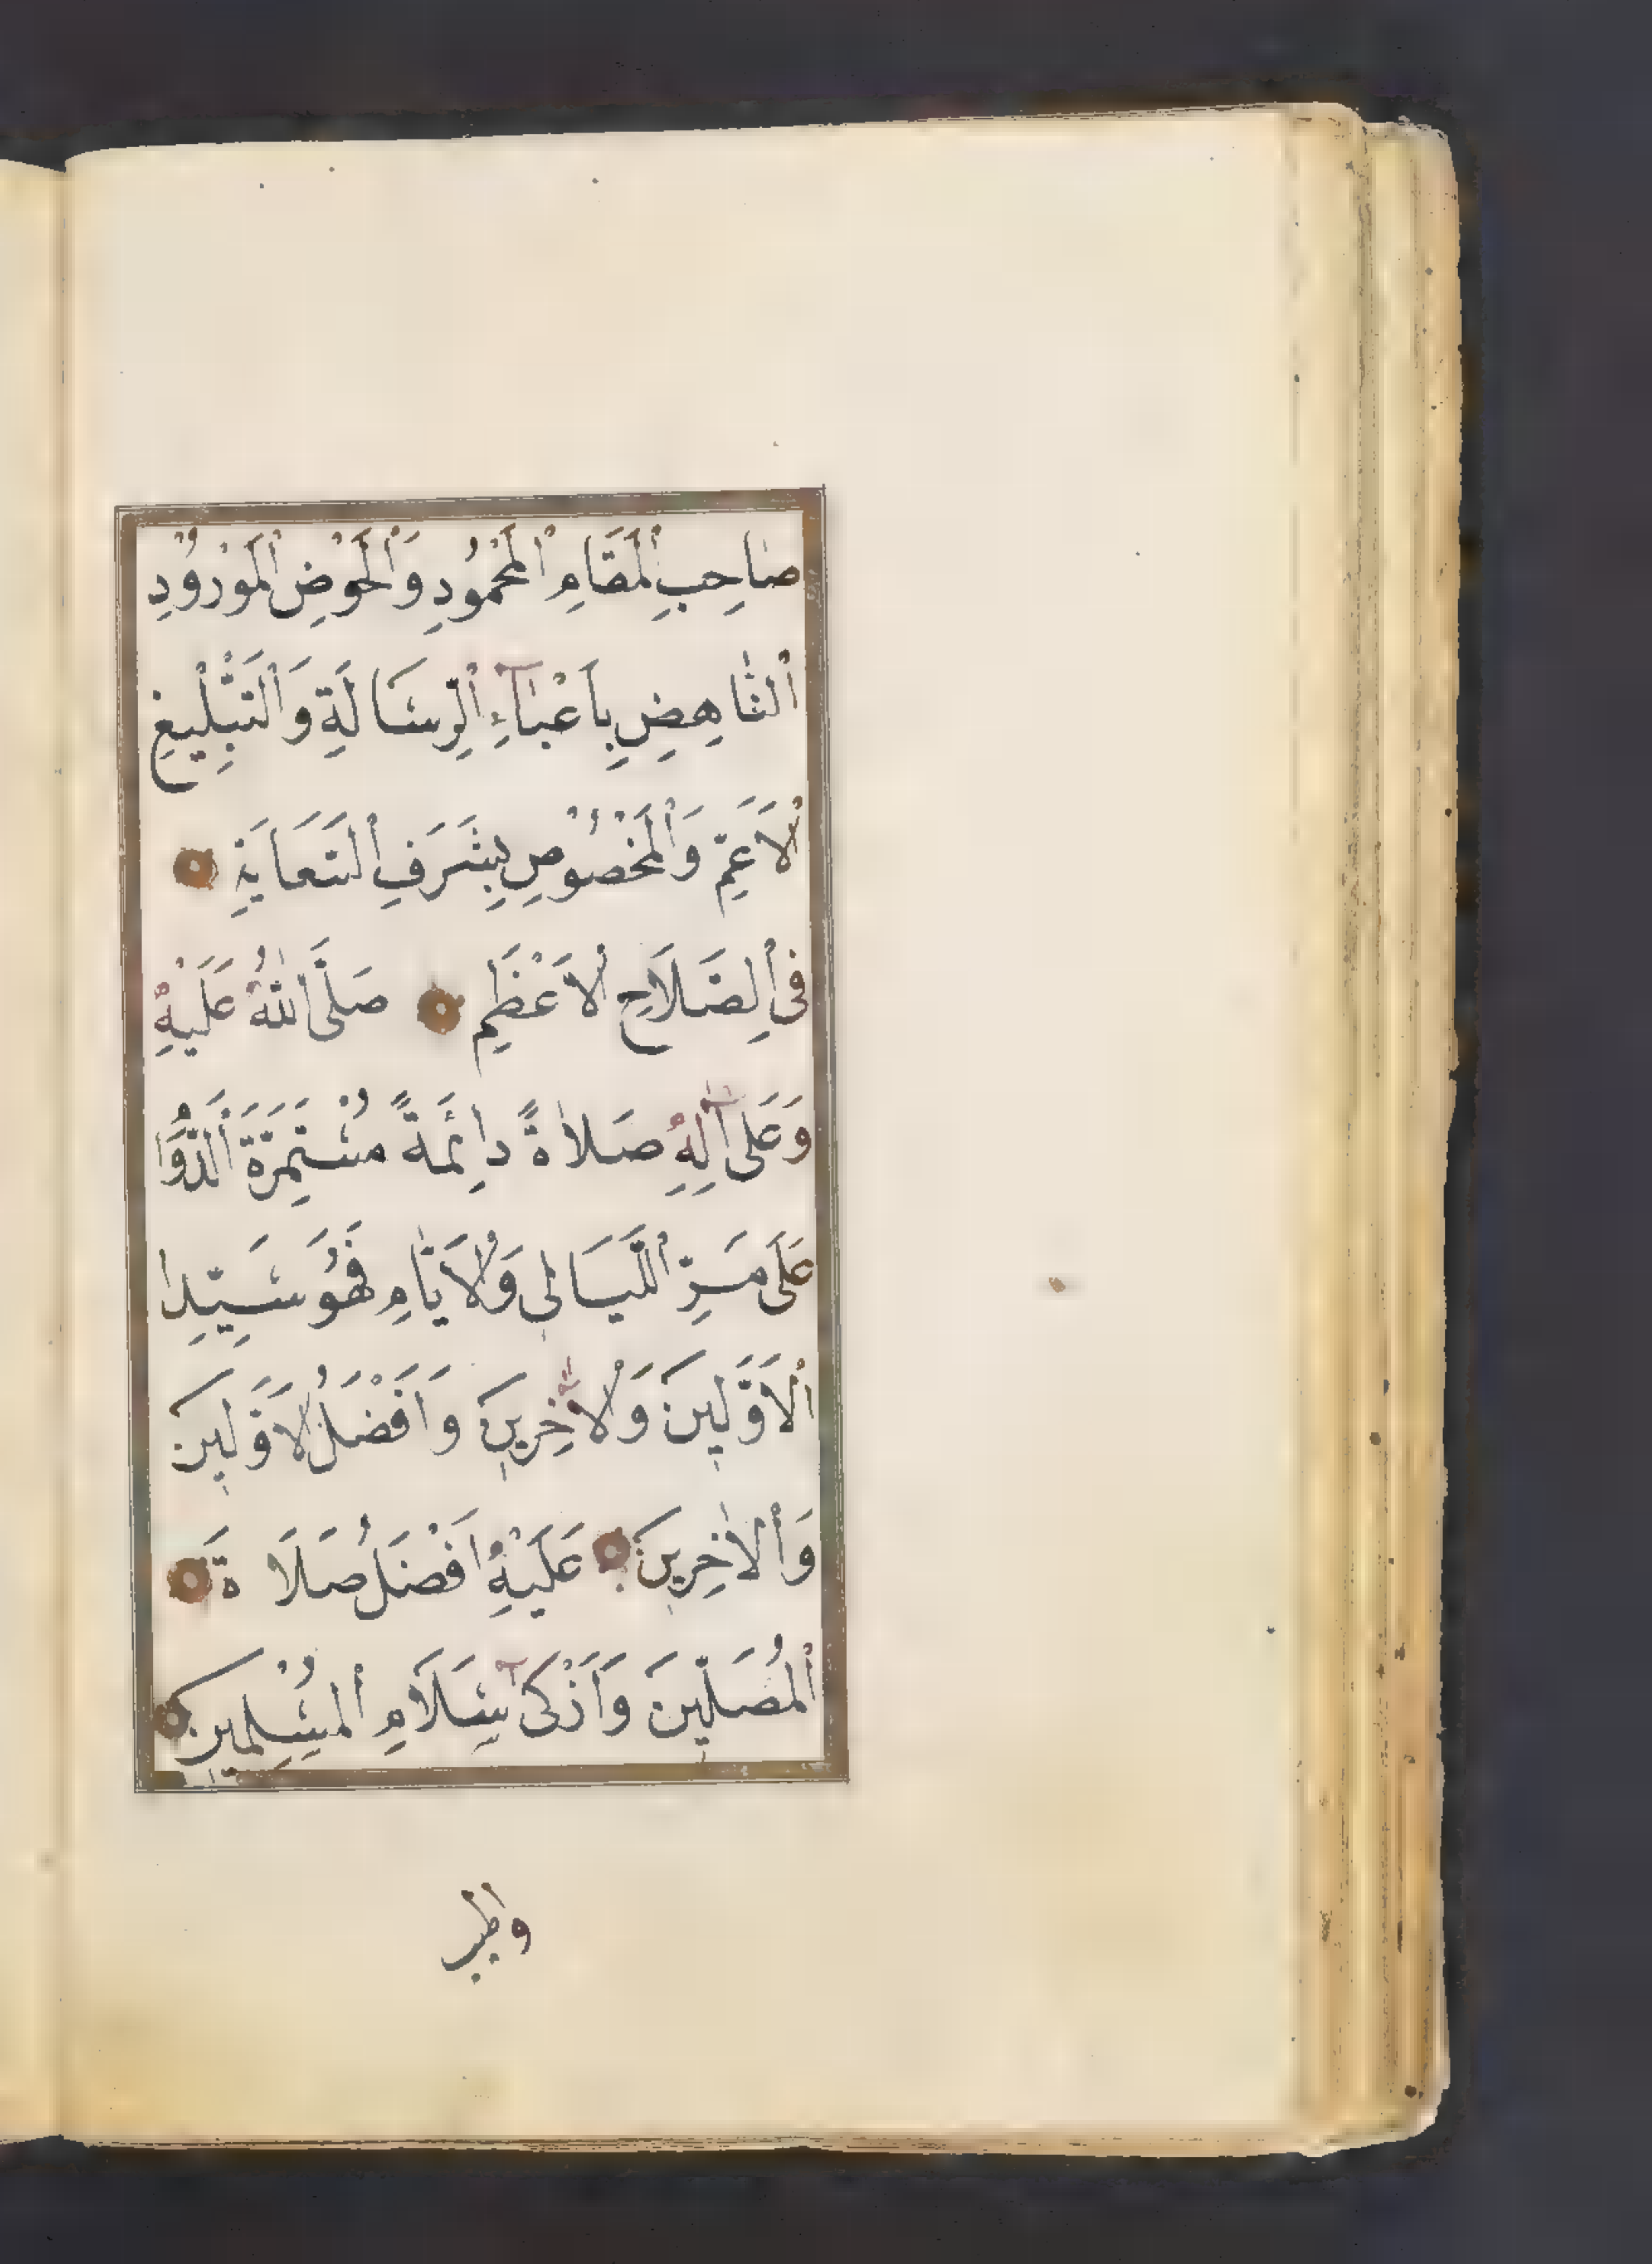 صَاحِبِ الْمَقَامِ الْمَحْمُودِ وَالْحَوْضِ الْمَوْرُوْدِ
اَلنَّاهِضِ بِاَعْبَآءِ الرِّسَالَةِ وَالتَّبْلِيْغِ
الْاَعَمِّ وَالْمَخْصُوْصِ بِشَرَفِ السَّعَايَةِ
فِى الصَّلَاحِ الْاَعْظَمِ صَلَّى اللّٰهُ عَلَيْهِ
وَعَلَى آلِهِ صَلَاةً دَائِمَةً مُسْتَمِرَّةَ الدَّوَا
عَلَى مَرِّ اللَّيَالِى وَالْاَيَّامِ فَهُوَ سَيِّدُ
الْاَوَّلِينَ وَالْاٰخِرِينَ وَاَفْضَلُ الْاَوَّلِينَ
وَالْاٰخِرِينَ عَلَيْهِ اَفْضَلُ صَلَاةِ
الْمُصَلِّينَ وَاَزْكَى سَلَامِ الْمُسْلِمِينَ
واطيب